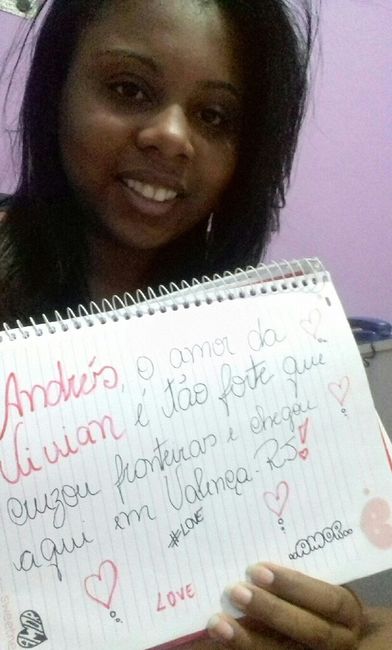 Andrés, o amor da
Vivian é tão forte que
cruzou fronteiras e chegou
aqui em Valença-RJ!
#LOVE
LOVE
AMOR